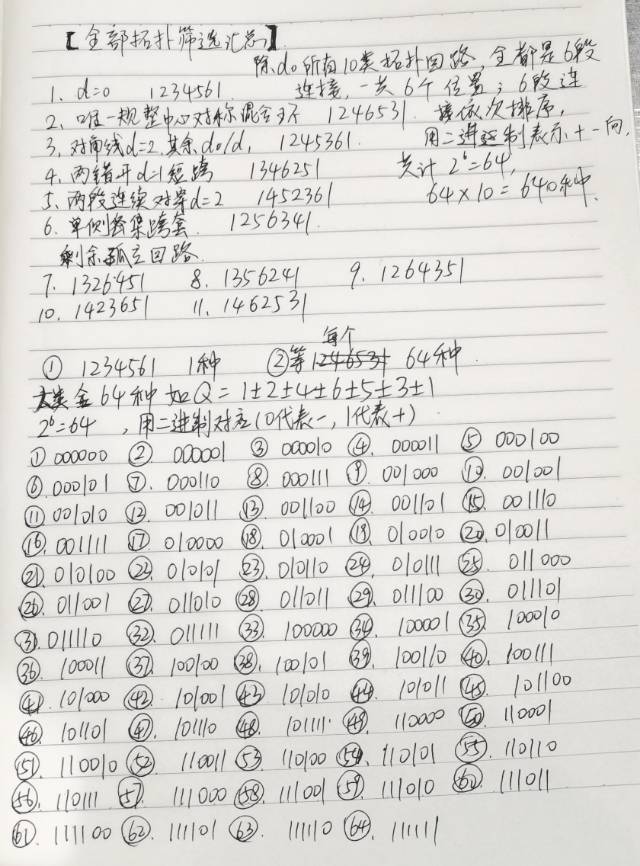 【全部拓扑筛选汇总】
除d₀所有10类拓扑回路,全都是6段
1. d=0 1234561 连接,一共6个位置;6段连
2. 唯一规整中心对称混合环 1246531 接依次排序,
3. 对角线d=2,其余d₀/d₁ 1245361 用二进制表示+-向,
4. 两错开d=1短跨 1346251 共计2⁶=64,
5. 两段连续对穿d=2 1452361 64×10=640种.
6. 单侧密集跨套 1256341
剩余孤立回路
7. 1326451 8. 1356241 9. 1264351
10. 1423651 11. 1462531
① 1234561 1种 ②等每个1246531 64种.
大类含64种 如Q=1±2±4±6±5±3±1
2⁶=64,用二进制对应(0代表-,1代表+)
① 000000 ② 000001 ③ 000010 ④ 000011 ⑤ 000100
⑥ 000101 ⑦ 000110 ⑧ 000111 ⑨ 001000 ⑩ 001001
⑪ 001010 ⑫ 001011 ⑬ 001100 ⑭ 001101 ⑮ 001110
⑯ 001111 ⑰ 010000 ⑱ 010001 ⑲ 010010 ⑳ 010011
㉑ 010100 ㉒ 010101 ㉓ 010110 ㉔ 010111 ㉕ 011000
㉖ 011001 ㉗ 011010 ㉘ 011011 ㉙ 011100 ㉚ 011101
㉛ 011110 ㉜ 011111 ㉝ 100000 ㉞ 100001 ㉟ 100010
㊱ 100011 ㊲ 100100 ㊳ 100101 ㊴ 100110 ㊵ 100111
㊶ 101000 ㊷ 101001 ㊸ 101010 ㊹ 101011 ㊺ 101100
㊻ 101101 ㊼ 101110 ㊽ 101111 ㊾ 110000 ㊿ 110001
(51) 110010 (52) 110011 (53) 110100 (54) 110101 (55) 110110
(56) 110111 (57) 111000 (58) 111001 (59) 111010 (60) 111011
(61) 111100 (62) 111101 (63) 111110 (64) 111111